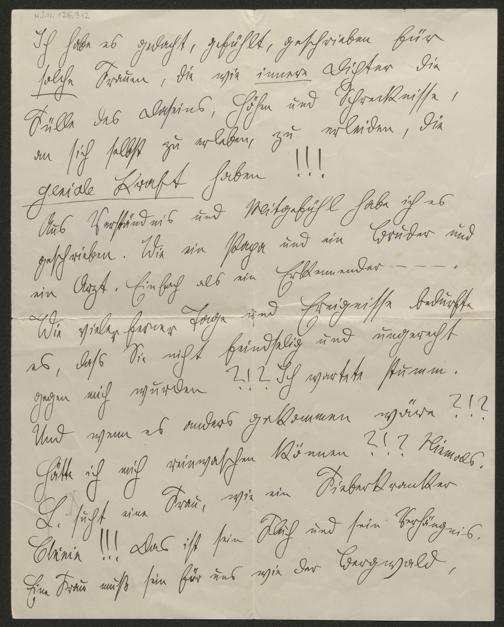 H.I.N. 126.912
Ich habe es gedacht, gefühlt, geschrieben für
solche Frauen, die wie innere Dichter die
Fülle des Daseins, Höhen und Schrecknisse,
an sich selbst zu erleben, zu erleiden, die
geniale Kraft haben !!!
Aus Verständnis und Mitgefühl habe ich es
geschrieben. Wie ein Papa und ein Bruder und
ein Arzt. Einfach als ein Erkennender — — — .
Wie vieler ferner Tage und Ereignisse bedurfte
es, dass Sie nicht feindselig und ungerecht
gegen mich wurden ?!? Ich wartete stumm.
Und wenn es anders gekommen wäre ?!?
Hätte ich mich reinwaschen können ?!? Niemals.
L. sucht eine Frau, wie ein Fieberkranker
!!! Das ist sein Fluch und sein Verhängnis.
Eine Frau muß sein für uns wie der Bergwald,